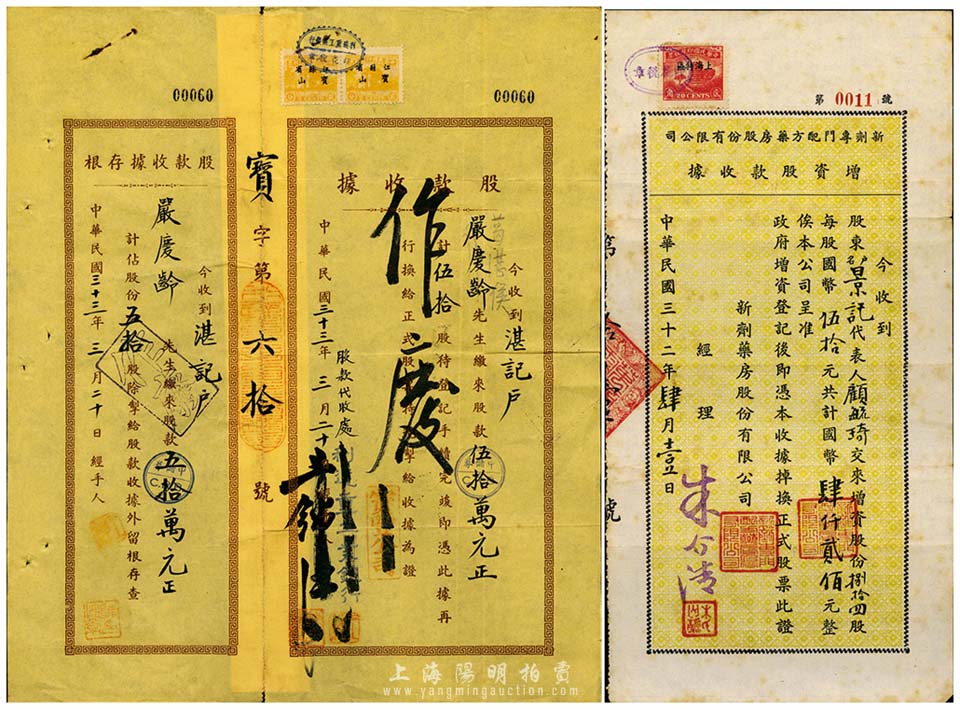 00060
股款收據存根
今收到湛記戶
嚴慶齡先生繳來股款五拾萬元正
計佔股份五拾股除掣給股款收據外留根存查
中華民國三十三年三月二十日 經手人
寶字第六拾號
江蘇省
寶山
江蘇省
寶山
00060
股款收據
今收到湛記戶
嚴慶齡先生繳來股款伍拾萬元正
計伍拾股待登記手續完竣即憑此據再
行換給正式股票特掣給收據為證
中華民國三十三年三月二十日
股款代收處
作廢
上海特區
20 CENTS
第 0011 號
新劑專門配方藥房股份有限公司
增資股款收據
今收到
股東景記代表人顧毓琦交來增資股份捌拾四股
每股國幣伍拾元共計國幣肆仟貳佰元整
俟本公司呈准
政府增資登記後即憑本收據掉換正式股票此證
新劑藥房股份有限公司
經理
中華民國三十二年肆月壹日
上海陽明拍賣
www.yangmingauction.com